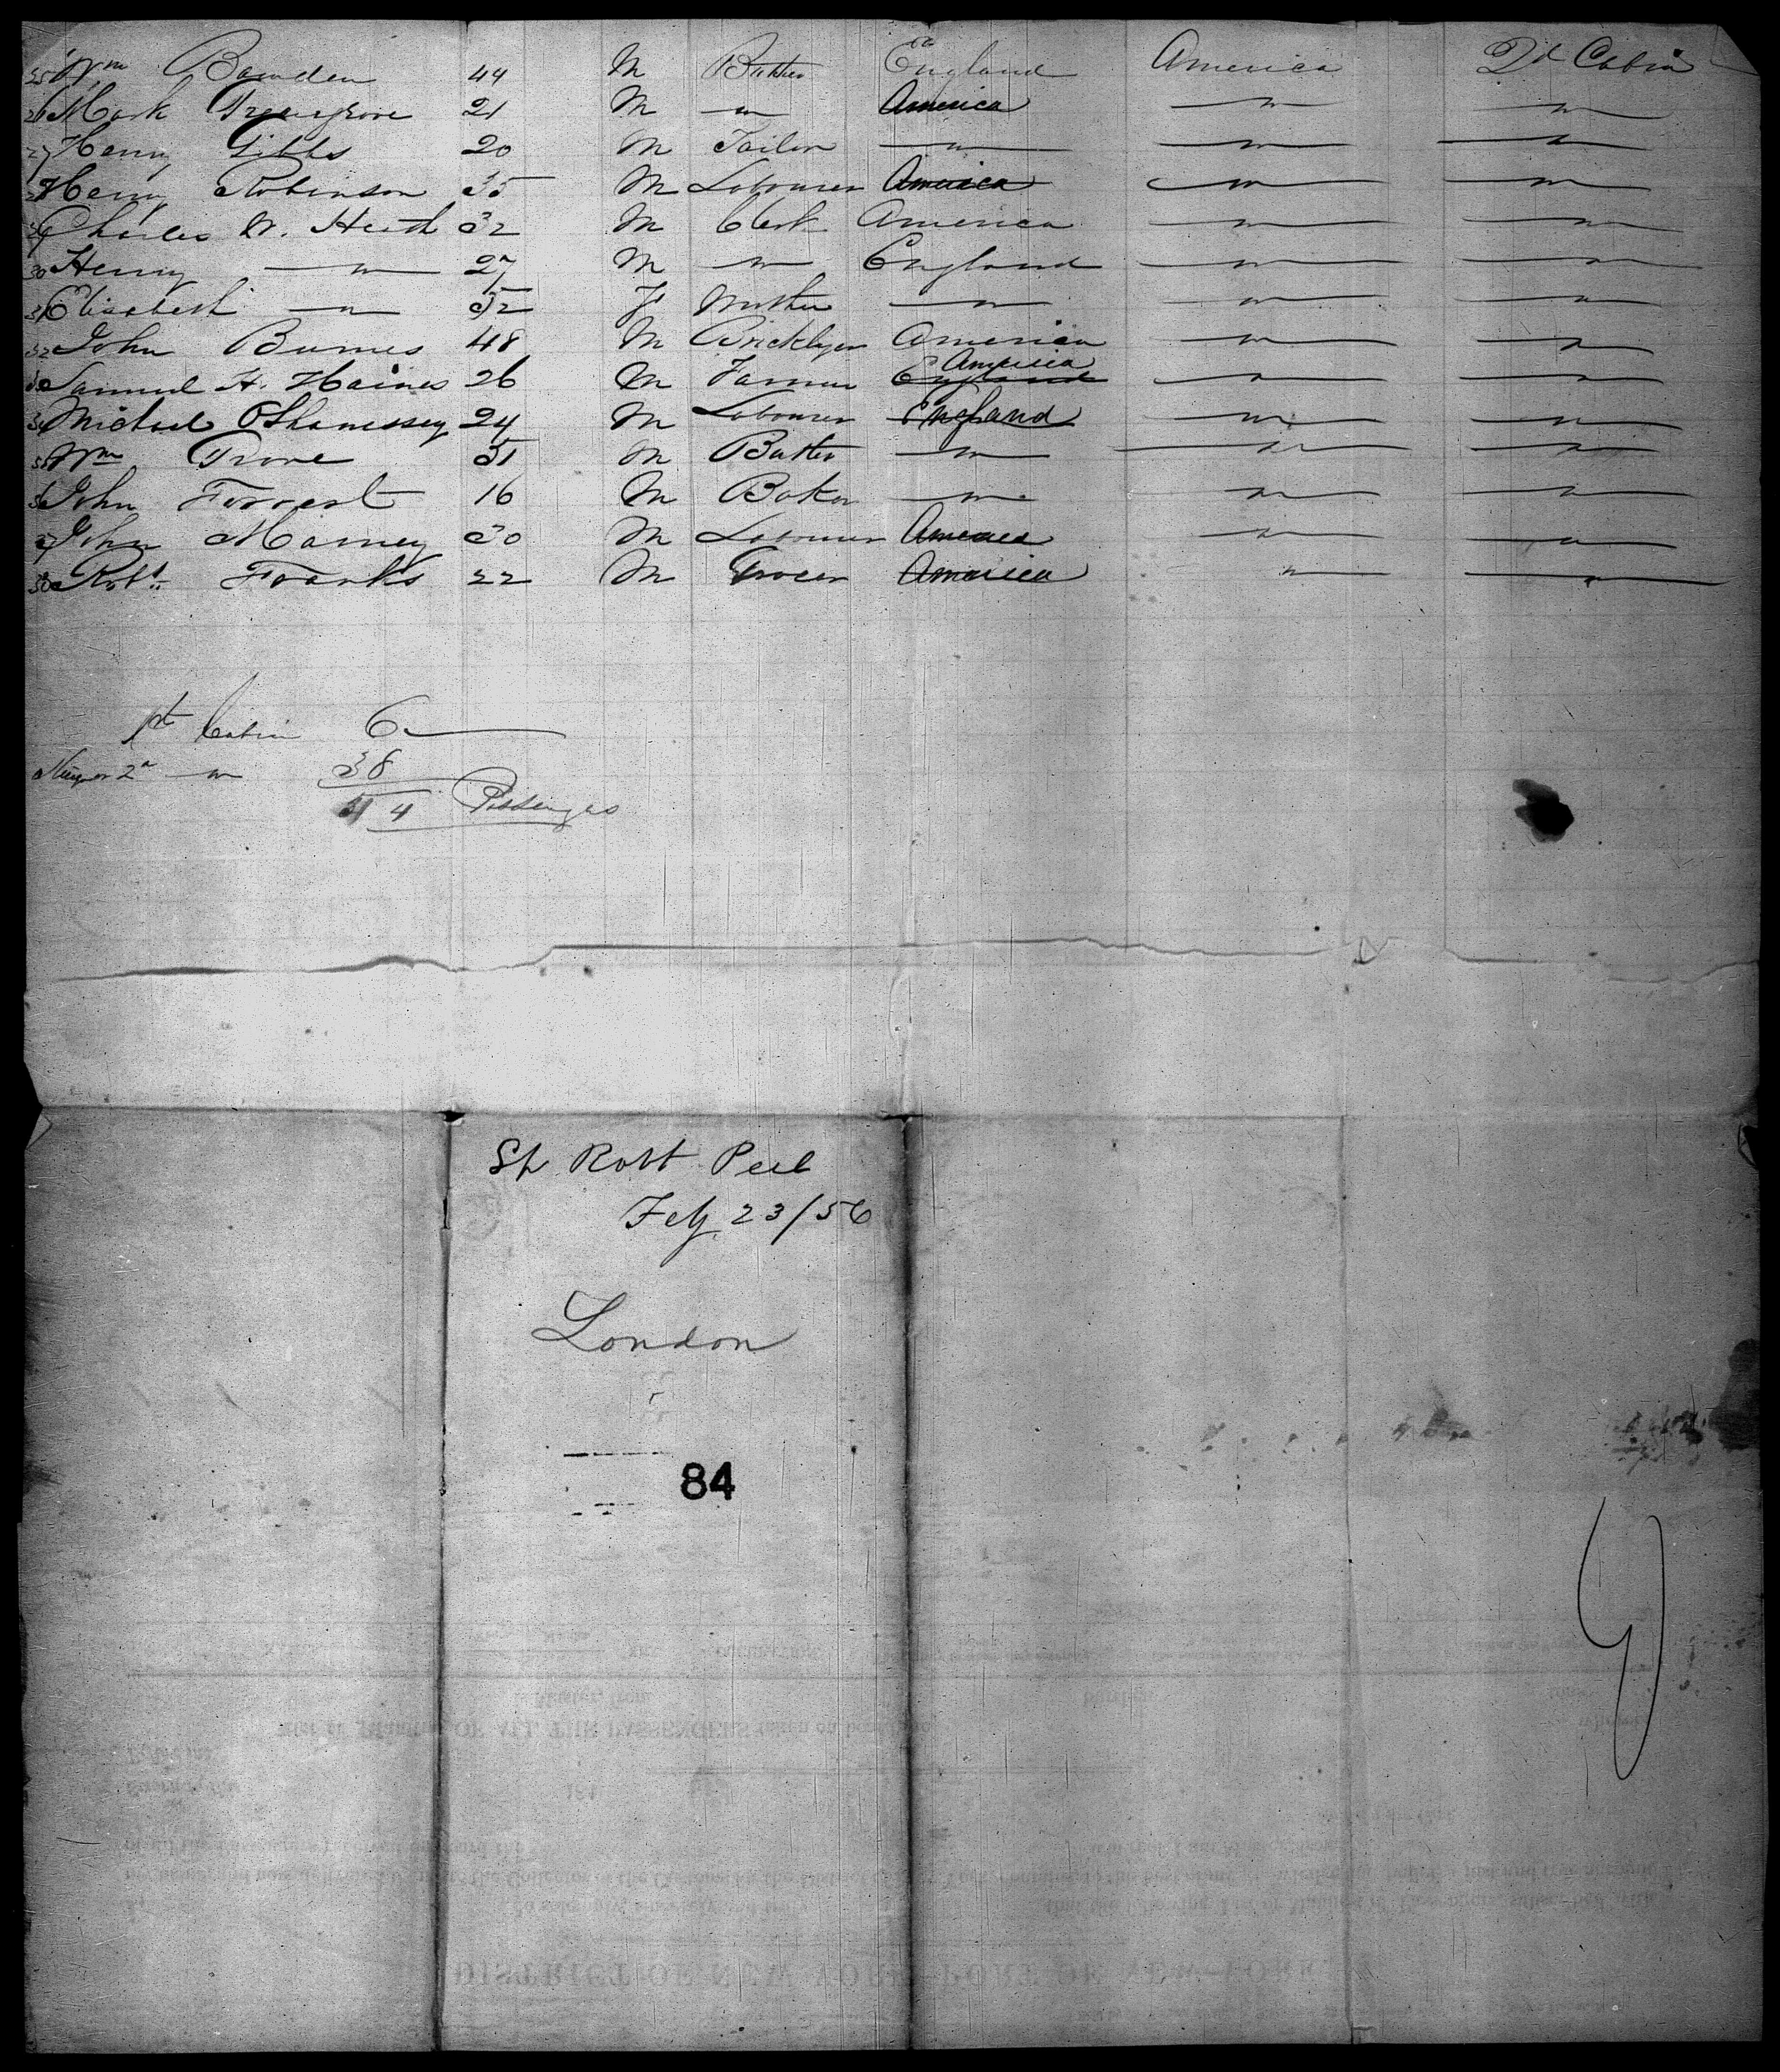 25 Wm Bowden 44 M Butcher England America 2d Cabin
26 Mark 21 M " America " "
27 Henry Gibbs 20 M Tailor " " "
28 Henry Robinson 35 M Labourer America " "
29 Charles W. Heath 32 M Clerk America " "
30 Henry " 27 M " England " "
31 Elizabeth " 52 F Mother " " "
32 John Burnes 48 M Bricklyer America " "
33 Samuel H. Haines 26 M Farmer England America " "
34 Michael OShanessey 24 M Labourer England " "
35 Wm Grove 51 M " " "
36 John Forrest 16 M Baker " " "
37 John Marney 30 M Labourer America " "
38 Robt Franks 22 M Grocer America " "
1st Cabin 6
2d " 38
44 Passengers
Sh Robt Peel
Feby 23/56
London
84